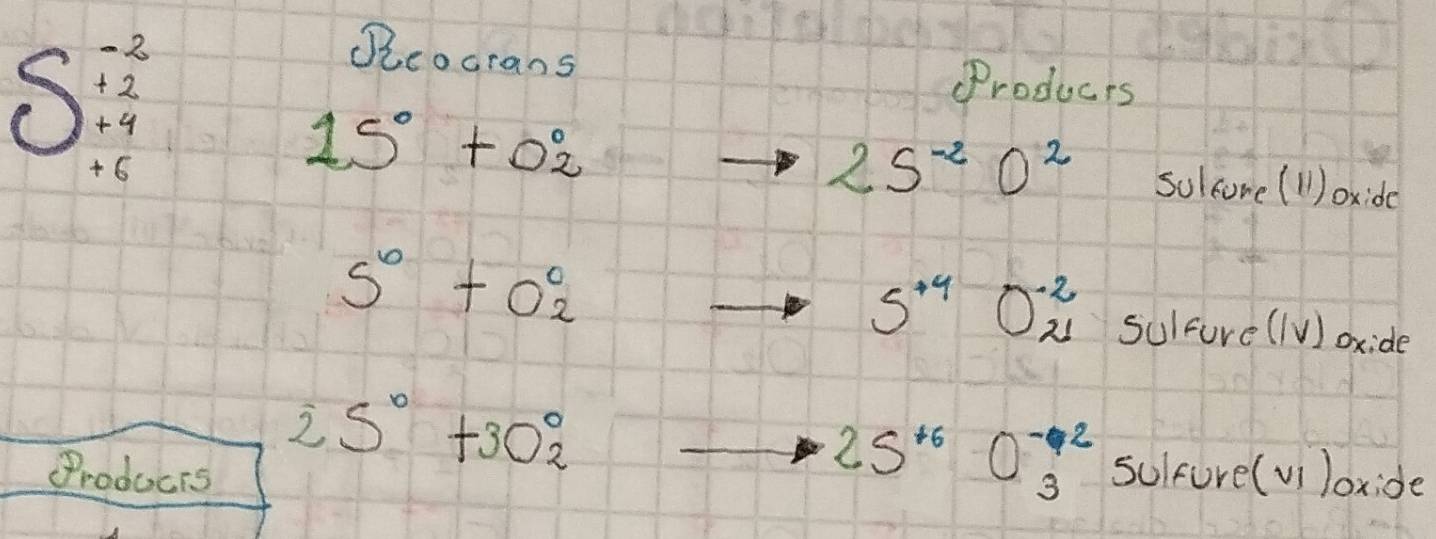 S -2 +2 +4 +6
Reocrans Products
1S⁰ + O₂⁰ → 2S⁻² O² Sulfure (II) oxide
S⁰ + O₂⁰ → S⁺⁴ O₂⁻² Sulfure (IV) oxide
2S⁰ + 3O₂⁰ → 2S⁺⁶ O₃⁻² Sulfure (VI) oxide
Products